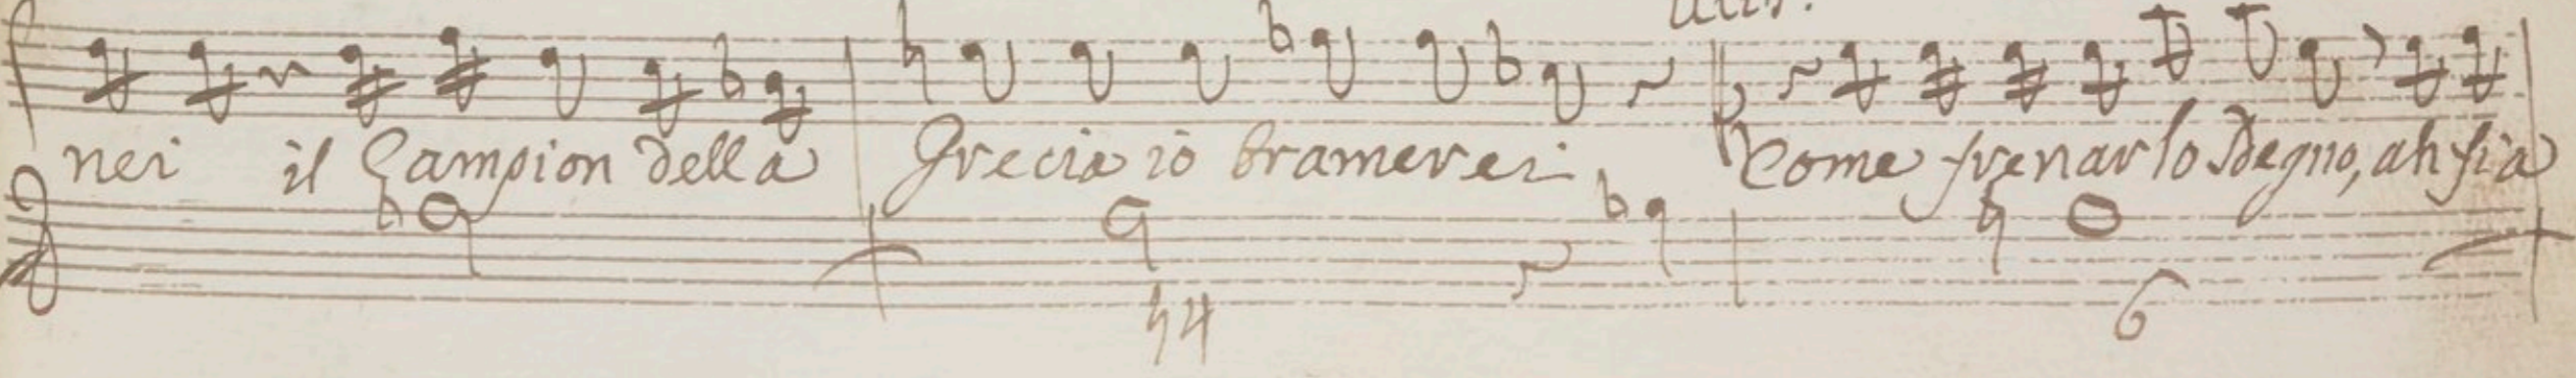 nei il Campion della Grecia io bramerei Come frenar lo sdegno, ah sia
♮4 6